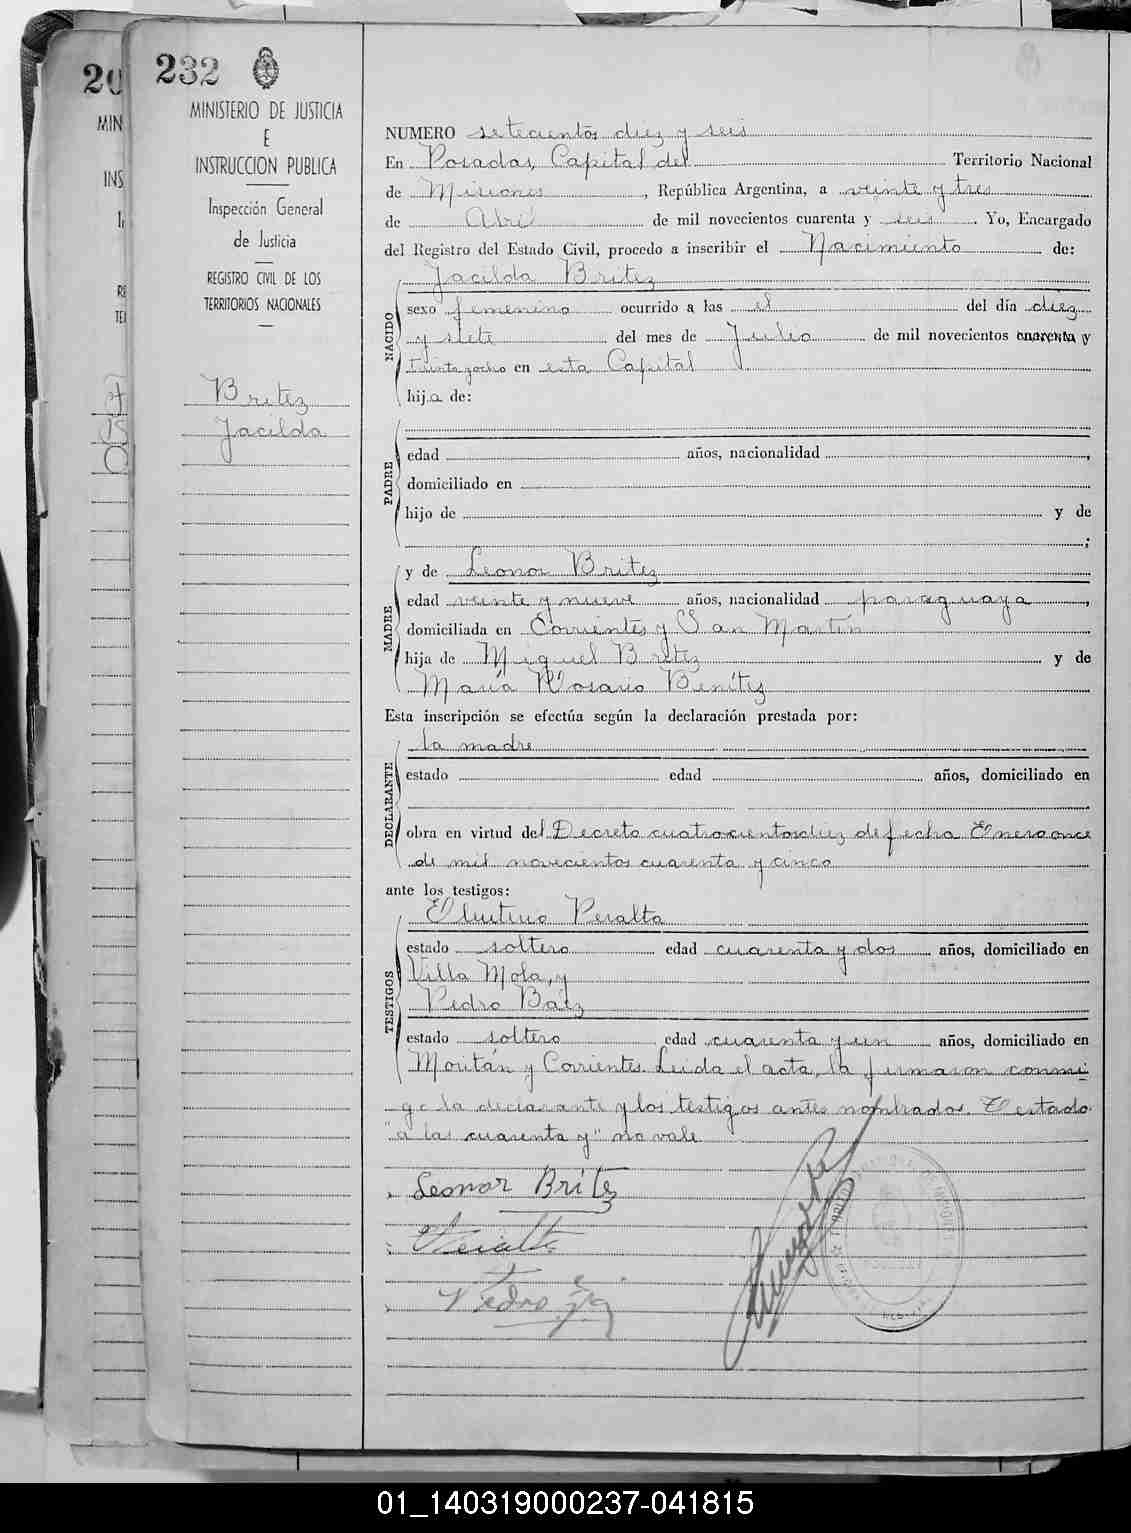 20
232
MIN
INS
MINISTERIO DE JUSTICIA
E
INSTRUCCION PUBLICA
Inspección General
de Justicia
REGISTRO CIVIL DE LOS
TERRITORIOS NACIONALES
Britez
Jacilda
NUMERO setecientos diez y seis
En Posadas, Capital del Territorio Nacional
de Misiones, República Argentina, a veinte y tres
de Abril de mil novecientos cuarenta y seis. Yo, Encargado
del Registro del Estado Civil, procedo a inscribir el Nacimiento de:
Jacilda Britez
NACIDO
sexo femenino ocurrido a las el del día diez
y siete del mes de Julio de mil novecientos cuarenta y
treinta y ocho en esta Capital
hija de:
PADRE
edad años, nacionalidad ,
domiciliado en
hijo de y de
;
y de Leonor Britez
MADRE
edad veinte y nueve años, nacionalidad paraguaya,
domiciliada en Corrientes y San Martín
hija de Miguel Britez y de
María Rosario Benítez
Esta inscripción se efectúa según la declaración prestada por:
la madre
DECLARANTE
estado edad años, domiciliado en
obra en virtud del Decreto cuatrocientosdiez de fecha Enero once
de mil novecientos cuarenta y cinco
ante los testigos:
Peralta
TESTIGOS
estado soltero edad cuarenta y dos años, domiciliado en
Villa Mola, y
Pedro Baéz
estado soltero edad cuarenta y un años, domiciliado en
y Corrientes. Leida el acta, la firmaron conmi-
go la declarante y los testigos antes nombrados. El estado
"a las cuarenta y" no vale
Leonor Britez
Peralta
Pedro
01_140319000237-041815